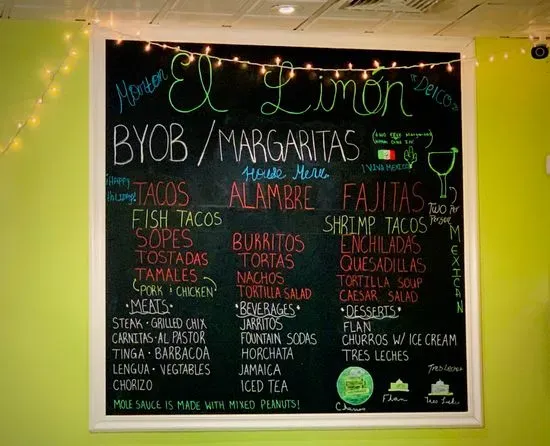 Morton
El Limón
"Delco"
BYOB / MARGARITAS
¡VIVA MEXICO!
House Menu
¡HAPPY
HOLIDAYS!
TACOS ALAMBRE FAJITAS
TWO PER
PERSON
MEXICAN
FISH TACOS SHRIMP TACOS
SOPES BURRITOS ENCHILADAS
TOSTADAS TORTAS QUESADILLAS
TAMALES NACHOS TORTILLA SOUP
PORK & CHICKEN TORTILLA SALAD CAESAR SALAD
·MEATS· ·BEVERAGES· ·DESSERTS·
STEAK · GRILLED CHIX JARRITOS FLAN
CARNITAS · AL PASTOR FOUNTAIN SODAS CHURROS W/ ICE CREAM
TINGA · BARBACOA HORCHATA TRES LECHES
LENGUA · VEGTABLES JAMAICA
CHORIZO ICED TEA
TRES LECHES
Churros Flan Tres Lech
MOLE SAUCE IS MADE WITH MIXED PEANUTS!